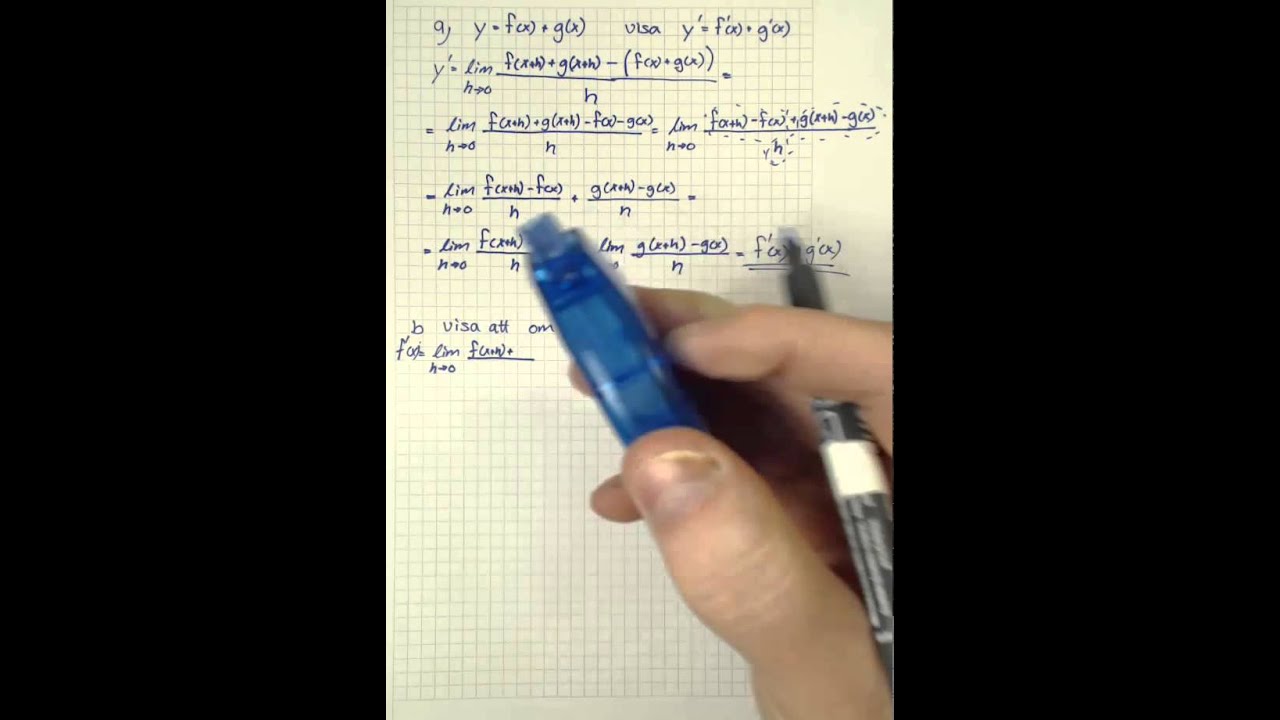 a) y = f(x) + g(x) visa y' = f'(x) + g'(x)
y' = lim h→0 f(x+h) + g(x+h) − (f(x) + g(x)) / h =
= lim h→0 f(x+h) + g(x+h) − f(x) − g(x) / h = lim h→0 f(x+h) − f(x) + g(x+h) − g(x) / h
= lim h→0 f(x+h) − f(x) / h + g(x+h) − g(x) / h =
= lim h→0 f(x+h) / h lim g(x+h) − g(x) / h = f'(x) g'(x)
b visa att om
f'(x) = lim h→0 f(x+h) +